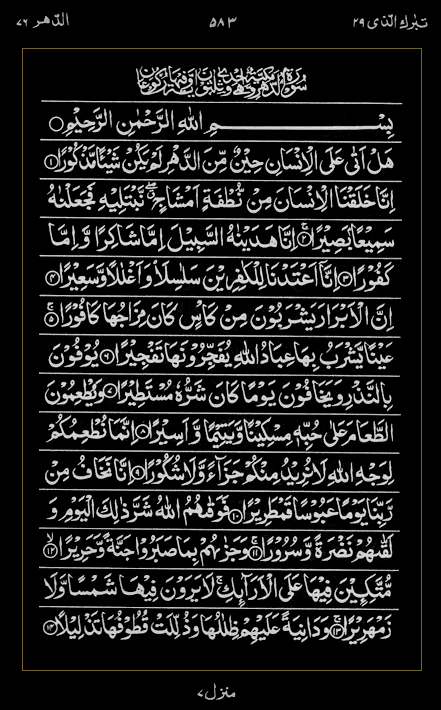 تبٰرك الذی ۲۹ ۵۸۳ الدهر ۷۶
سُوْرَةُ الدَّهْرِ
بِسْمِ اللهِ الرَّحْمٰنِ الرَّحِيْمِ
هَلْ اَتٰى عَلَى الْاِنْسَانِ حِيْنٌ مِّنَ الدَّهْرِ لَمْ يَكُنْ شَيْئًا مَّذْكُوْرًا ۱
اِنَّا خَلَقْنَا الْاِنْسَانَ مِنْ نُّطْفَةٍ اَمْشَاجٍ نَّبْتَلِيْهِ فَجَعَلْنٰهُ
سَمِيْعًۢا بَصِيْرًا ۲ اِنَّا هَدَيْنٰهُ السَّبِيْلَ اِمَّا شَاكِرًا وَّاِمَّا
كَفُوْرًا ۳ اِنَّاۤ اَعْتَدْنَا لِلْكٰفِرِيْنَ سَلٰسِلَا۟ وَاَغْلٰلًا وَّسَعِيْرًا ۴
اِنَّ الْاَبْرَارَ يَشْرَبُوْنَ مِنْ كَاْسٍ كَانَ مِزَاجُهَا كَافُوْرًا ۵
عَيْنًا يَّشْرَبُ بِهَا عِبَادُ اللهِ يُفَجِّرُوْنَهَا تَفْجِيْرًا ۶ يُوْفُوْنَ
بِالنَّذْرِ وَيَخَافُوْنَ يَوْمًا كَانَ شَرُّهٗ مُسْتَطِيْرًا ۷ وَيُطْعِمُوْنَ
الطَّعَامَ عَلٰى حُبِّهٖ مِسْكِيْنًا وَّيَتِيْمًا وَّاَسِيْرًا ۸ اِنَّمَا نُطْعِمُكُمْ
لِوَجْهِ اللهِ لَا نُرِيْدُ مِنْكُمْ جَزَآءً وَّلَا شُكُوْرًا ۹ اِنَّا نَخَافُ مِنْ
رَّبِّنَا يَوْمًا عَبُوْسًا قَمْطَرِيْرًا ۱۰ فَوَقٰىهُمُ اللهُ شَرَّ ذٰلِكَ الْيَوْمِ وَ
لَقّٰىهُمْ نَضْرَةً وَّسُرُوْرًا ۱۱ وَجَزٰىهُمْ بِمَا صَبَرُوْا جَنَّةً وَّحَرِيْرًا ۱۲
مُّتَّكِـِٕيْنَ فِيْهَا عَلَى الْاَرَآىِٕكِ لَا يَرَوْنَ فِيْهَا شَمْسًا وَّلَا
زَمْهَرِيْرًا ۱۳ وَدَانِيَةً عَلَيْهِمْ ظِلٰلُهَا وَذُلِّلَتْ قُطُوْفُهَا تَذْلِيْلًا ۱۴
منزل ۷